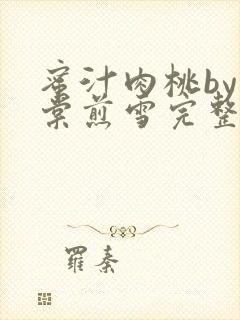 蜜汁肉桃by
棠煎雪完整
羅秦